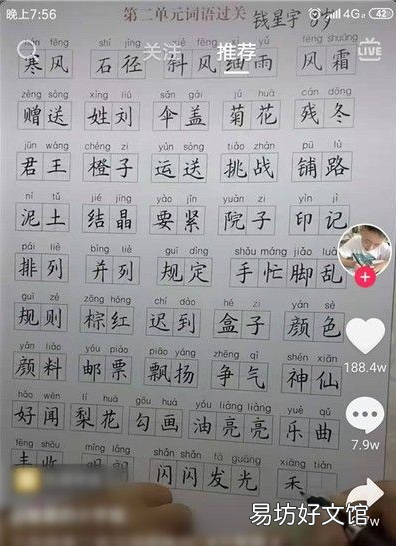 晚上7:56 4G 42
第二单元词语过关 钱星宇 8岁
关注 推荐 LIVE
fēng shí jìng xié fēng yǔ fēng shuāng
寒风 石径 斜风细雨 风霜
zèng sòng xìng liú sǎn gài jú huā cán dōng
赠送 姓刘 伞盖 菊花 残冬
jūn wáng chéng zi yùn sòng tiǎo zhàn pū lù
君王 橙子 运送 挑战 铺路
ní tǔ jié jīng yào jǐn yuàn zi yìn jì
泥土 结晶 要紧 院子 印记
pái liè bìng liè guī dìng shǒu máng jiǎo luàn
排列 并列 规定 手忙脚乱
guī zé zōng hóng chí dào hé zi yán sè
规则 棕红 迟到 盒子 颜色
yán liào yóu piào piāo yáng zhēng qì shén xiān
颜料 邮票 飘扬 争气 神仙
hǎo wén lí huā gōu huà yóu liàng liàng yuè qǔ
好闻 梨花 勾画 油亮亮 乐曲
fēng shōu míng lǎng shǎn shǎn fā guāng xiāng tián
丰收 明朗 闪闪发光
188.4w
7.9w
易坊好文馆